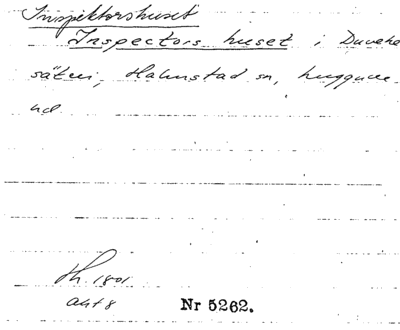 Inspektorshuset
Inspectors huset i Duveke
säteri, Halmstad sn, Luggude
hd
Hh. 1801
akt 8
Nr 5262.